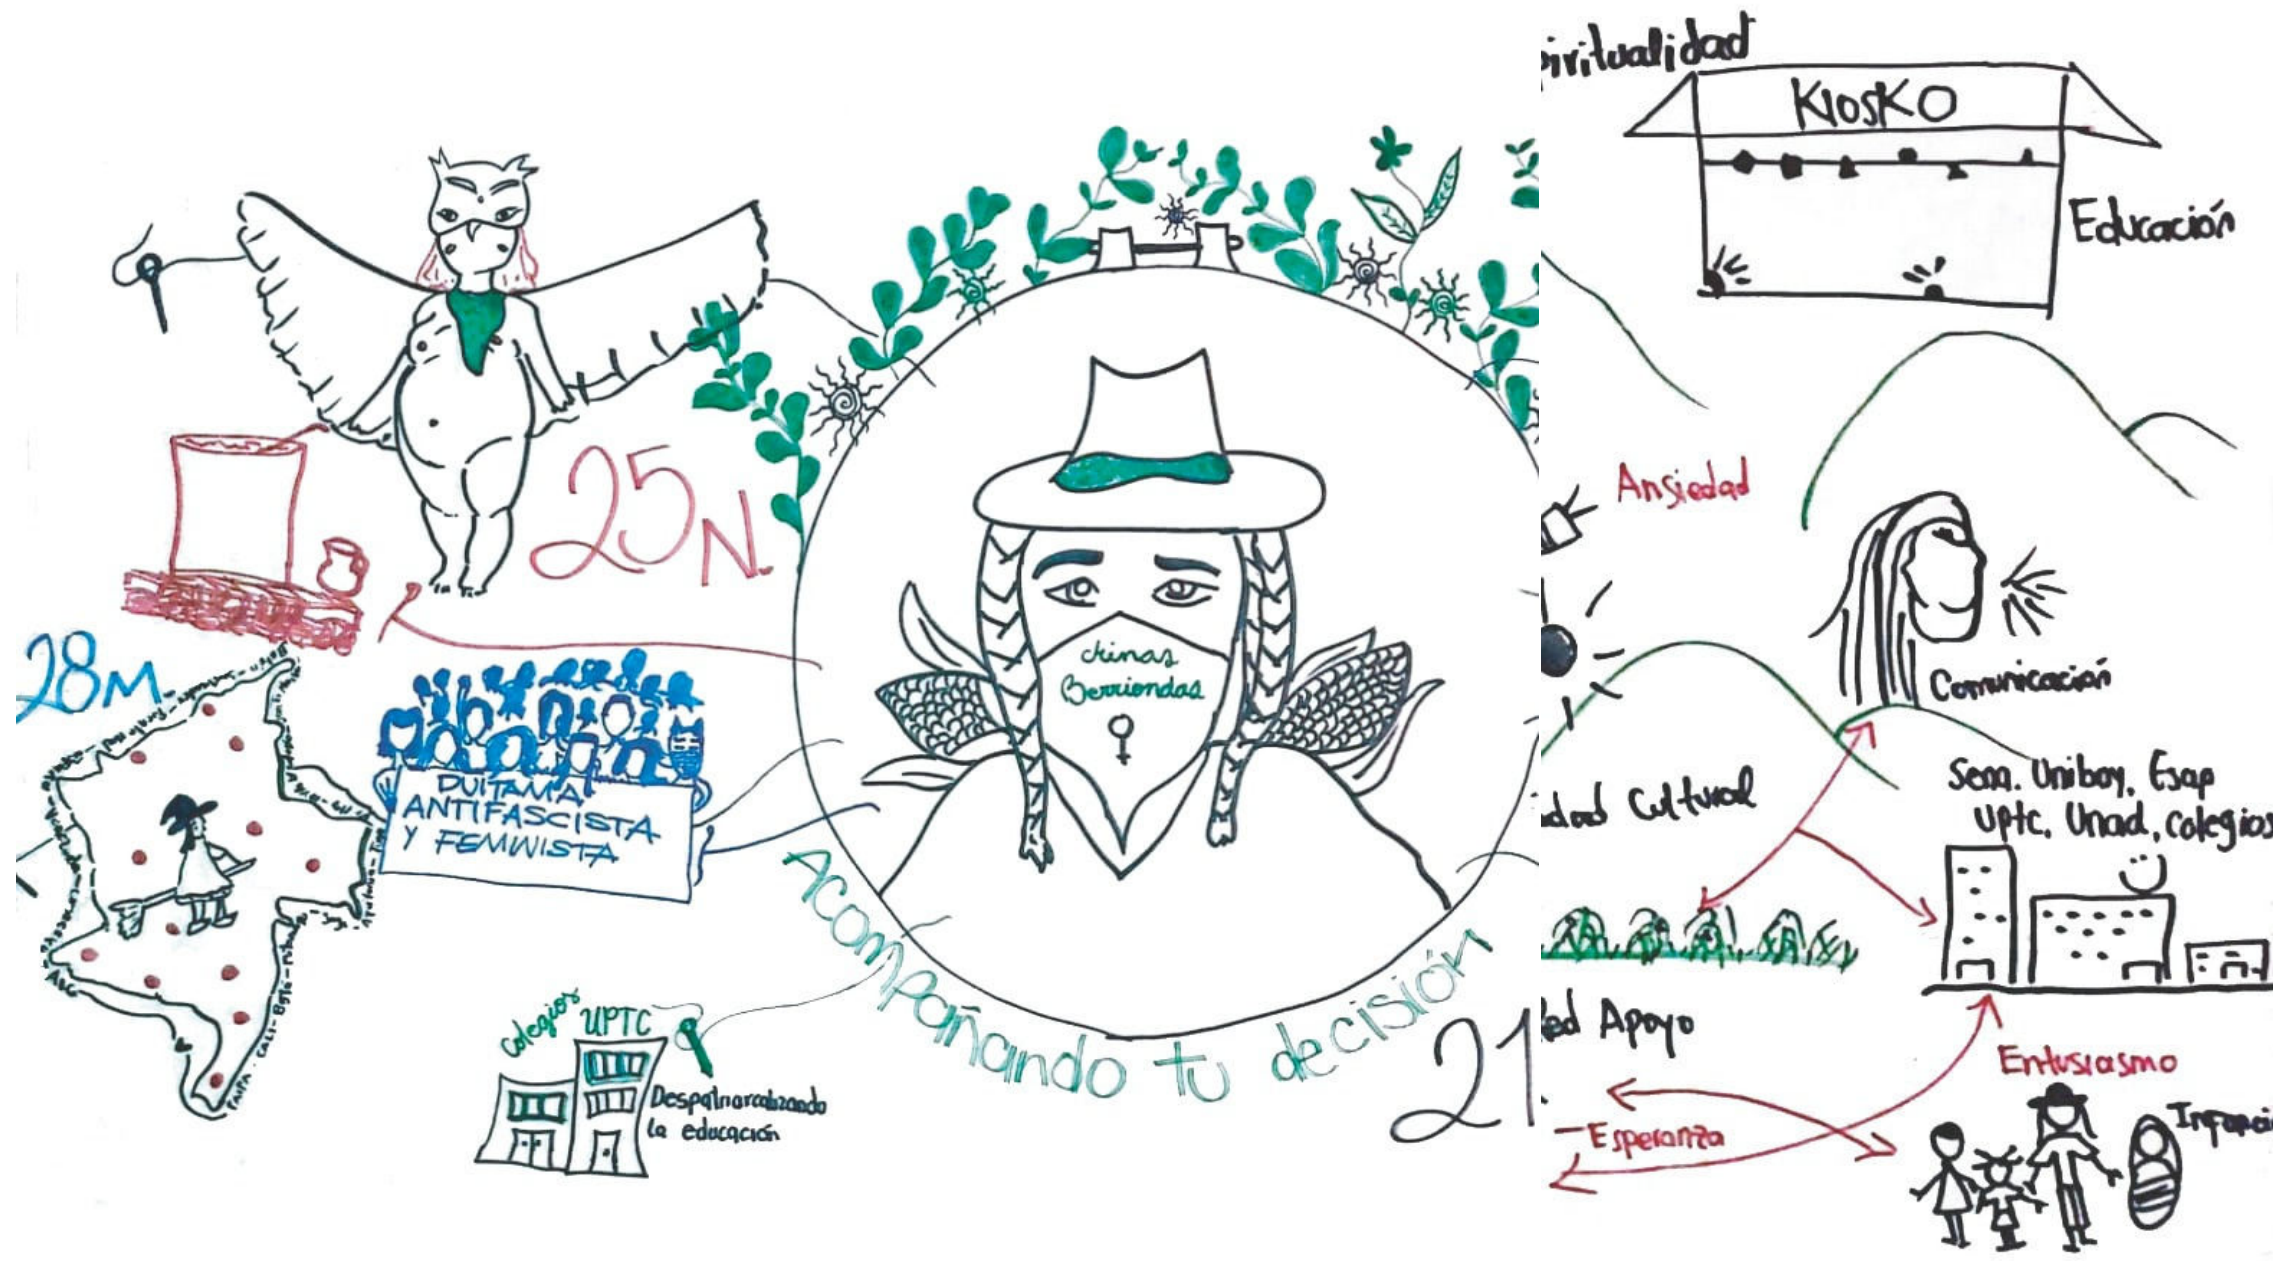 25N.
28M
Chinas
Berriondas
DUITAMA
ANTIFASCISTA
Y FEMINISTA
Acompañando tu decisión
Colegios
UPTC
Despatriarcalizando
la educación
21
iritualidad
KIOSKO
Educación
Ansiedad
Comunicación
dad Cultural
Sena. Uniboy. Esap
Uptc. Unad. colegios
ed Apoyo
Entusiasmo
Esperanza
Infanci